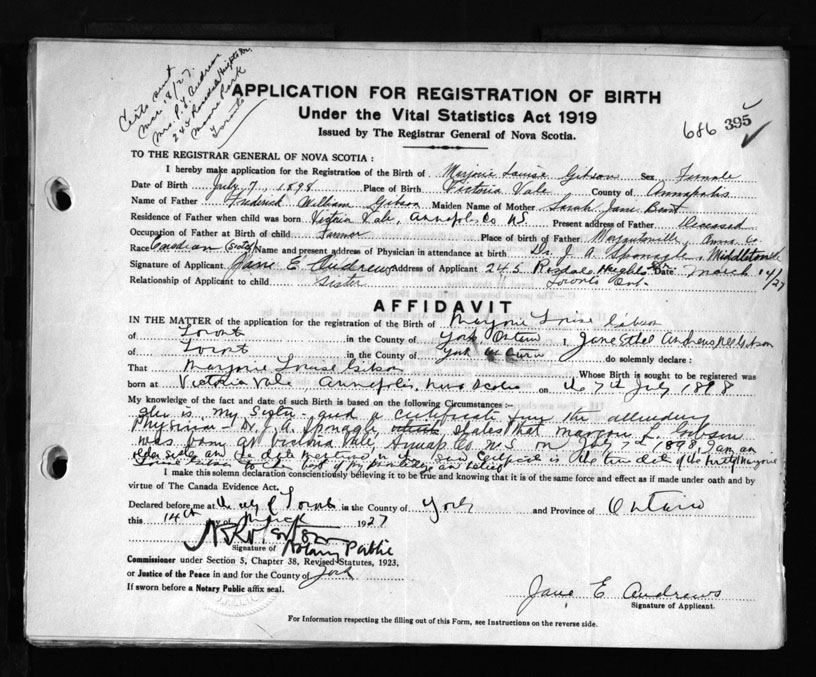 Certs sent
Mar 18/27.
Mrs. P. Y. Andrews
245 Rosedale Heights Dr.
Moore Park
Toronto
APPLICATION FOR REGISTRATION OF BIRTH
Under the Vital Statistics Act 1919
Issued by The Registrar General of Nova Scotia.
686 395
TO THE REGISTRAR GENERAL OF NOVA SCOTIA :
I hereby make application for the Registration of the Birth of Marjorie Louise Gibson Sex Female
Date of Birth July 7, 1898 Place of Birth Victoria Vale County of Annapolis
Name of Father Frederick William Gibson Maiden Name of Mother Sarah Jane Bent
Residence of Father when child was born Victoria Vale, Annapolis Co N.S. Present address of Father Deceased
Occupation of Father at Birth of child Farmer Place of birth of Father Margaretsville, Anna. Co.
Race Canadian (Scotch) Name and present address of Physician in attendance at birth Dr. J. A. Sponagle, Middleton N.S.
Signature of Applicant Jane E Andrews Address of Applicant 245 Rosdale Heights Dr Date March 14/27
Relationship of Applicant to child Sister Toronto Ont.
AFFIDAVIT
IN THE MATTER of the application for the registration of the Birth of Marjorie Louise Gibson
of Toronto in the County of York, Ontario I, Jane Ethel Andrews nee Gibson
of Toronto in the County of York do solemnly declare :
That Marjorie Louise Gibson Whose Birth is sought to be registered was
born at Victoria Vale Annapolis, Nova Scotia on the 7th July 1898
My knowledge of the fact and date of such Birth is based on the following Circumstances :-
She is my Sister and a certificate from the attending
Physician Dr. J. A. Sponagle states that Marjorie L. Gibson
was born at Victoria Vale, Annap. Co. N.S. on July 7th 1898 I am an
older sister and the date mentioned in the said Certificate is the true date of the birth of Marjorie
Louise Gibson to the best of my knowledge and belief
I make this solemn declaration conscientiously believing it to be true and knowing that it is of the same force and effect as if made under oath and by
virtue of The Canada Evidence Act.
Declared before me at the city of Toronto in the County of York and Province of Ontario
this 14th day of March 1927
Signature of Notary Public
Commissioner under Section 5, Chapter 38, Revised Statutes, 1923,
or Justice of the Peace in and for the County of York
If sworn before a Notary Public affix seal.
Jane E Andrews
Signature of Applicant.
For Information respecting the filling out of this Form, see Instructions on the reverse side.